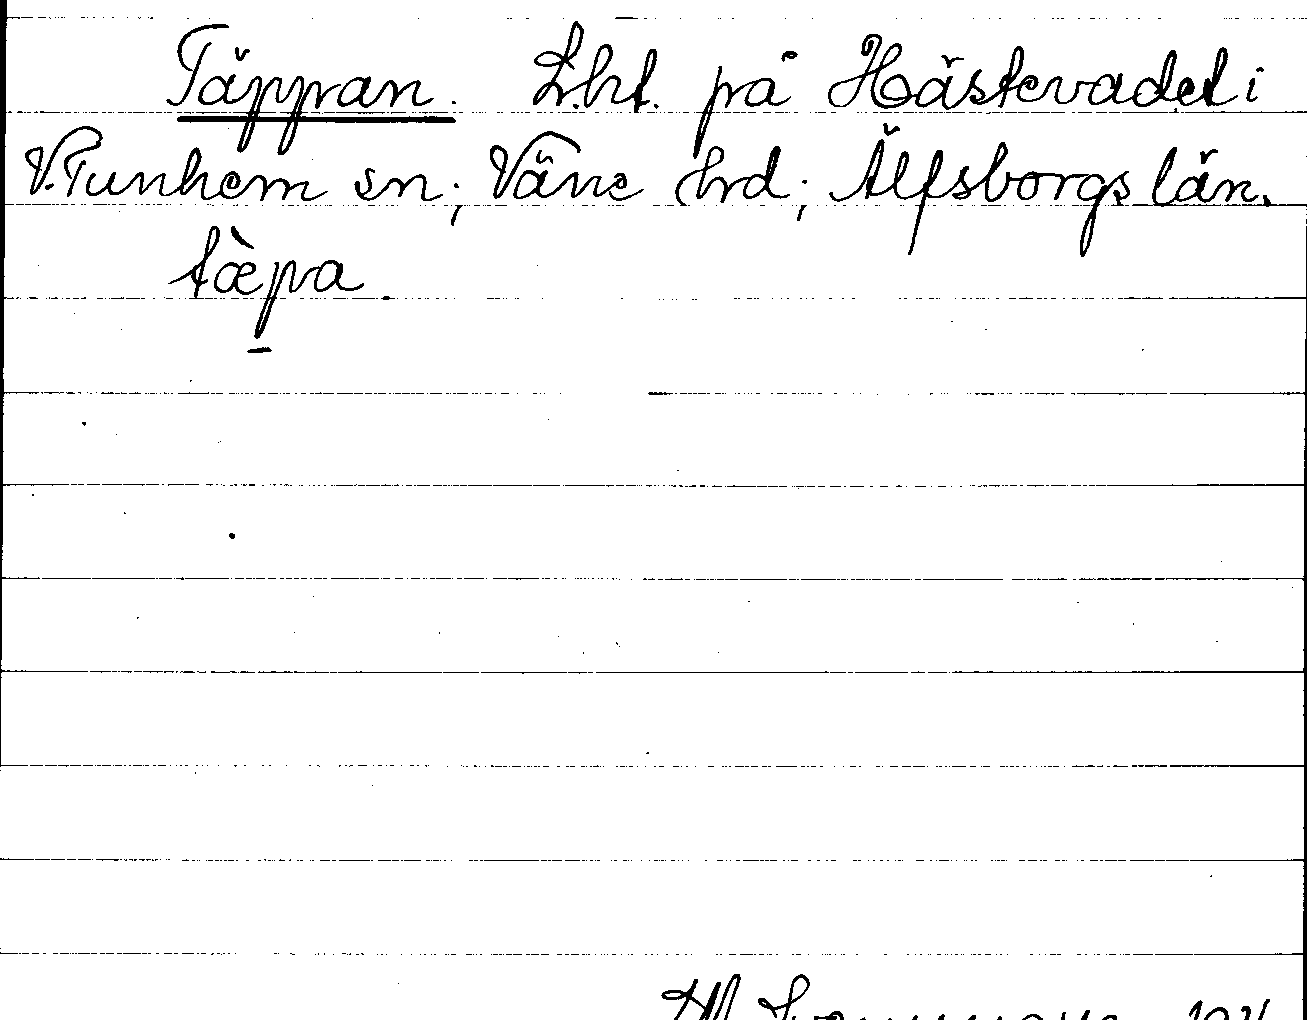 Täppan. Lht. på Hästevadet i
V. Tunhem sn; Väne hrd; Älfsborgs län.
tæ̀pa